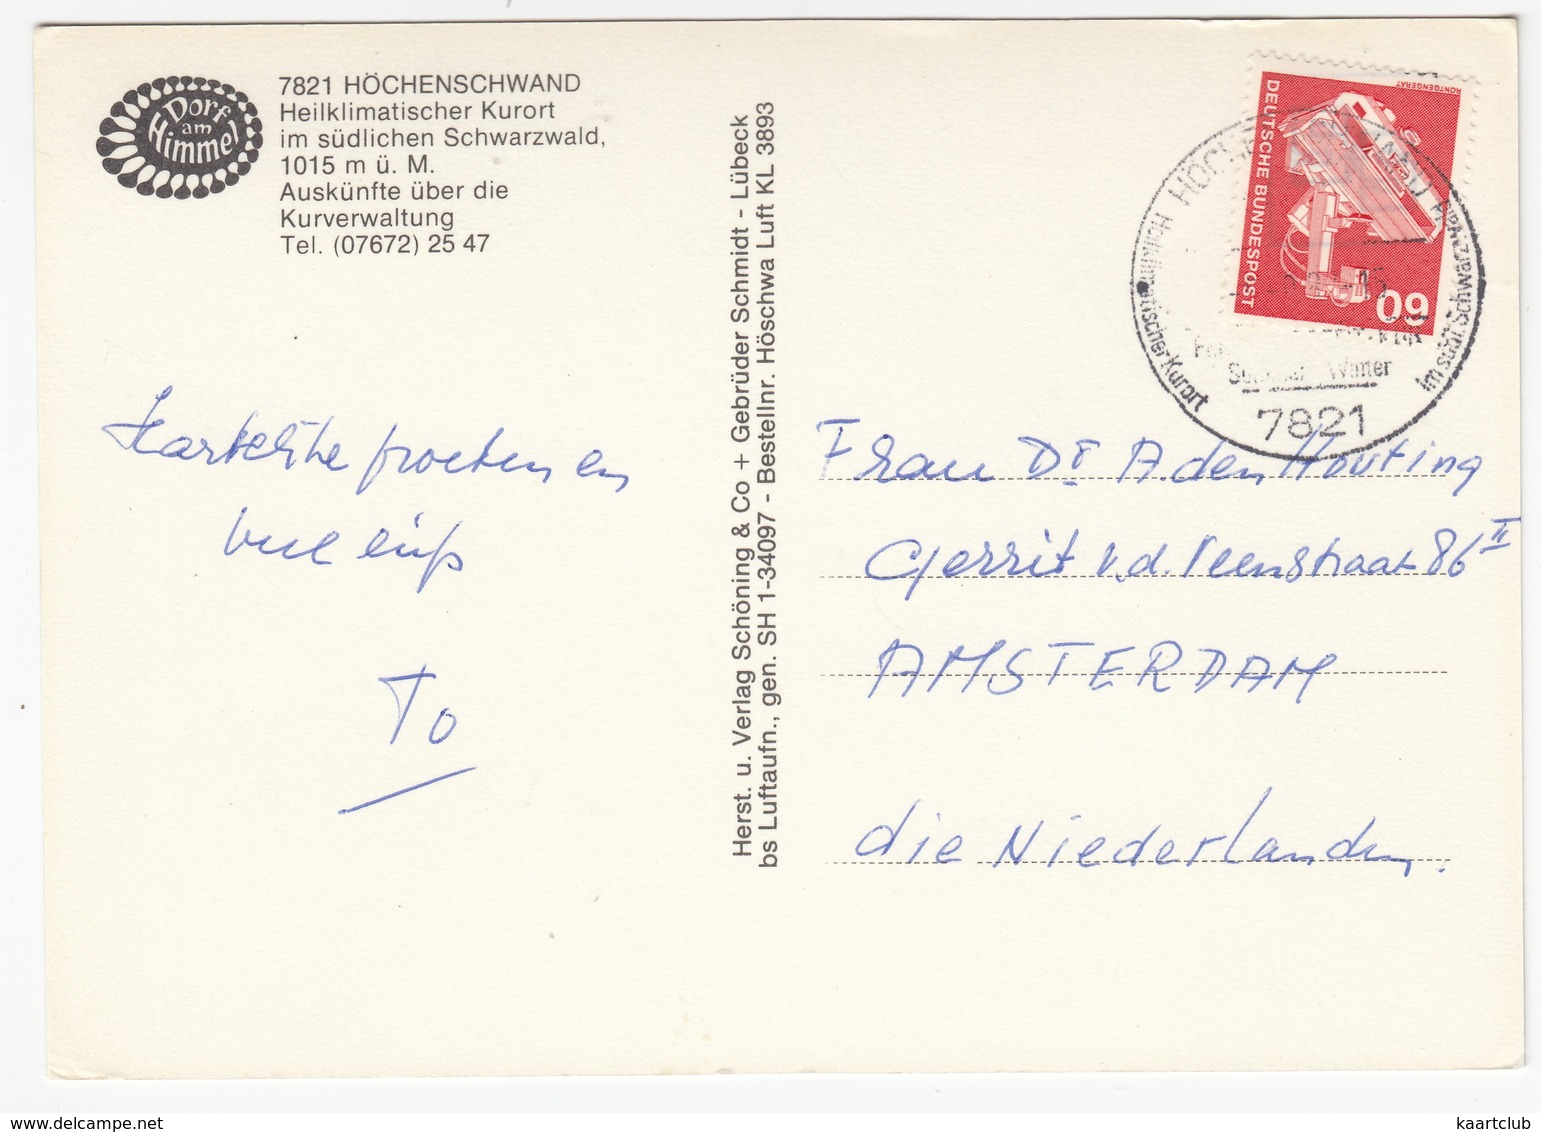 Dorf
am
Himmel
7821 HÖCHENSCHWAND
Heilklimatischer Kurort
im südlichen Schwarzwald,
1015 m ü. M.
Auskünfte über die
Kurverwaltung
Tel. (07672) 25 47
Hartelijke groeten en
To
Herst. u. Verlag Schöning & Co + Gebrüder Schmidt - Lübeck
bs Luftaufn., gen. SH 1-34097 - Bestellnr. Höschwa Luft KL 3893
RÖNTGENGERÄT
DEUTSCHE BUNDESPOST
60
Heilklimatischer Kurort
Im südl. Schwarzwald
Winter
7821
Frau Dr A. den Houting
Gerrit v.d. Veenstraat 86 II
AMSTERDAM
die Niederlanden.
www.delcampe.net
kaartclub